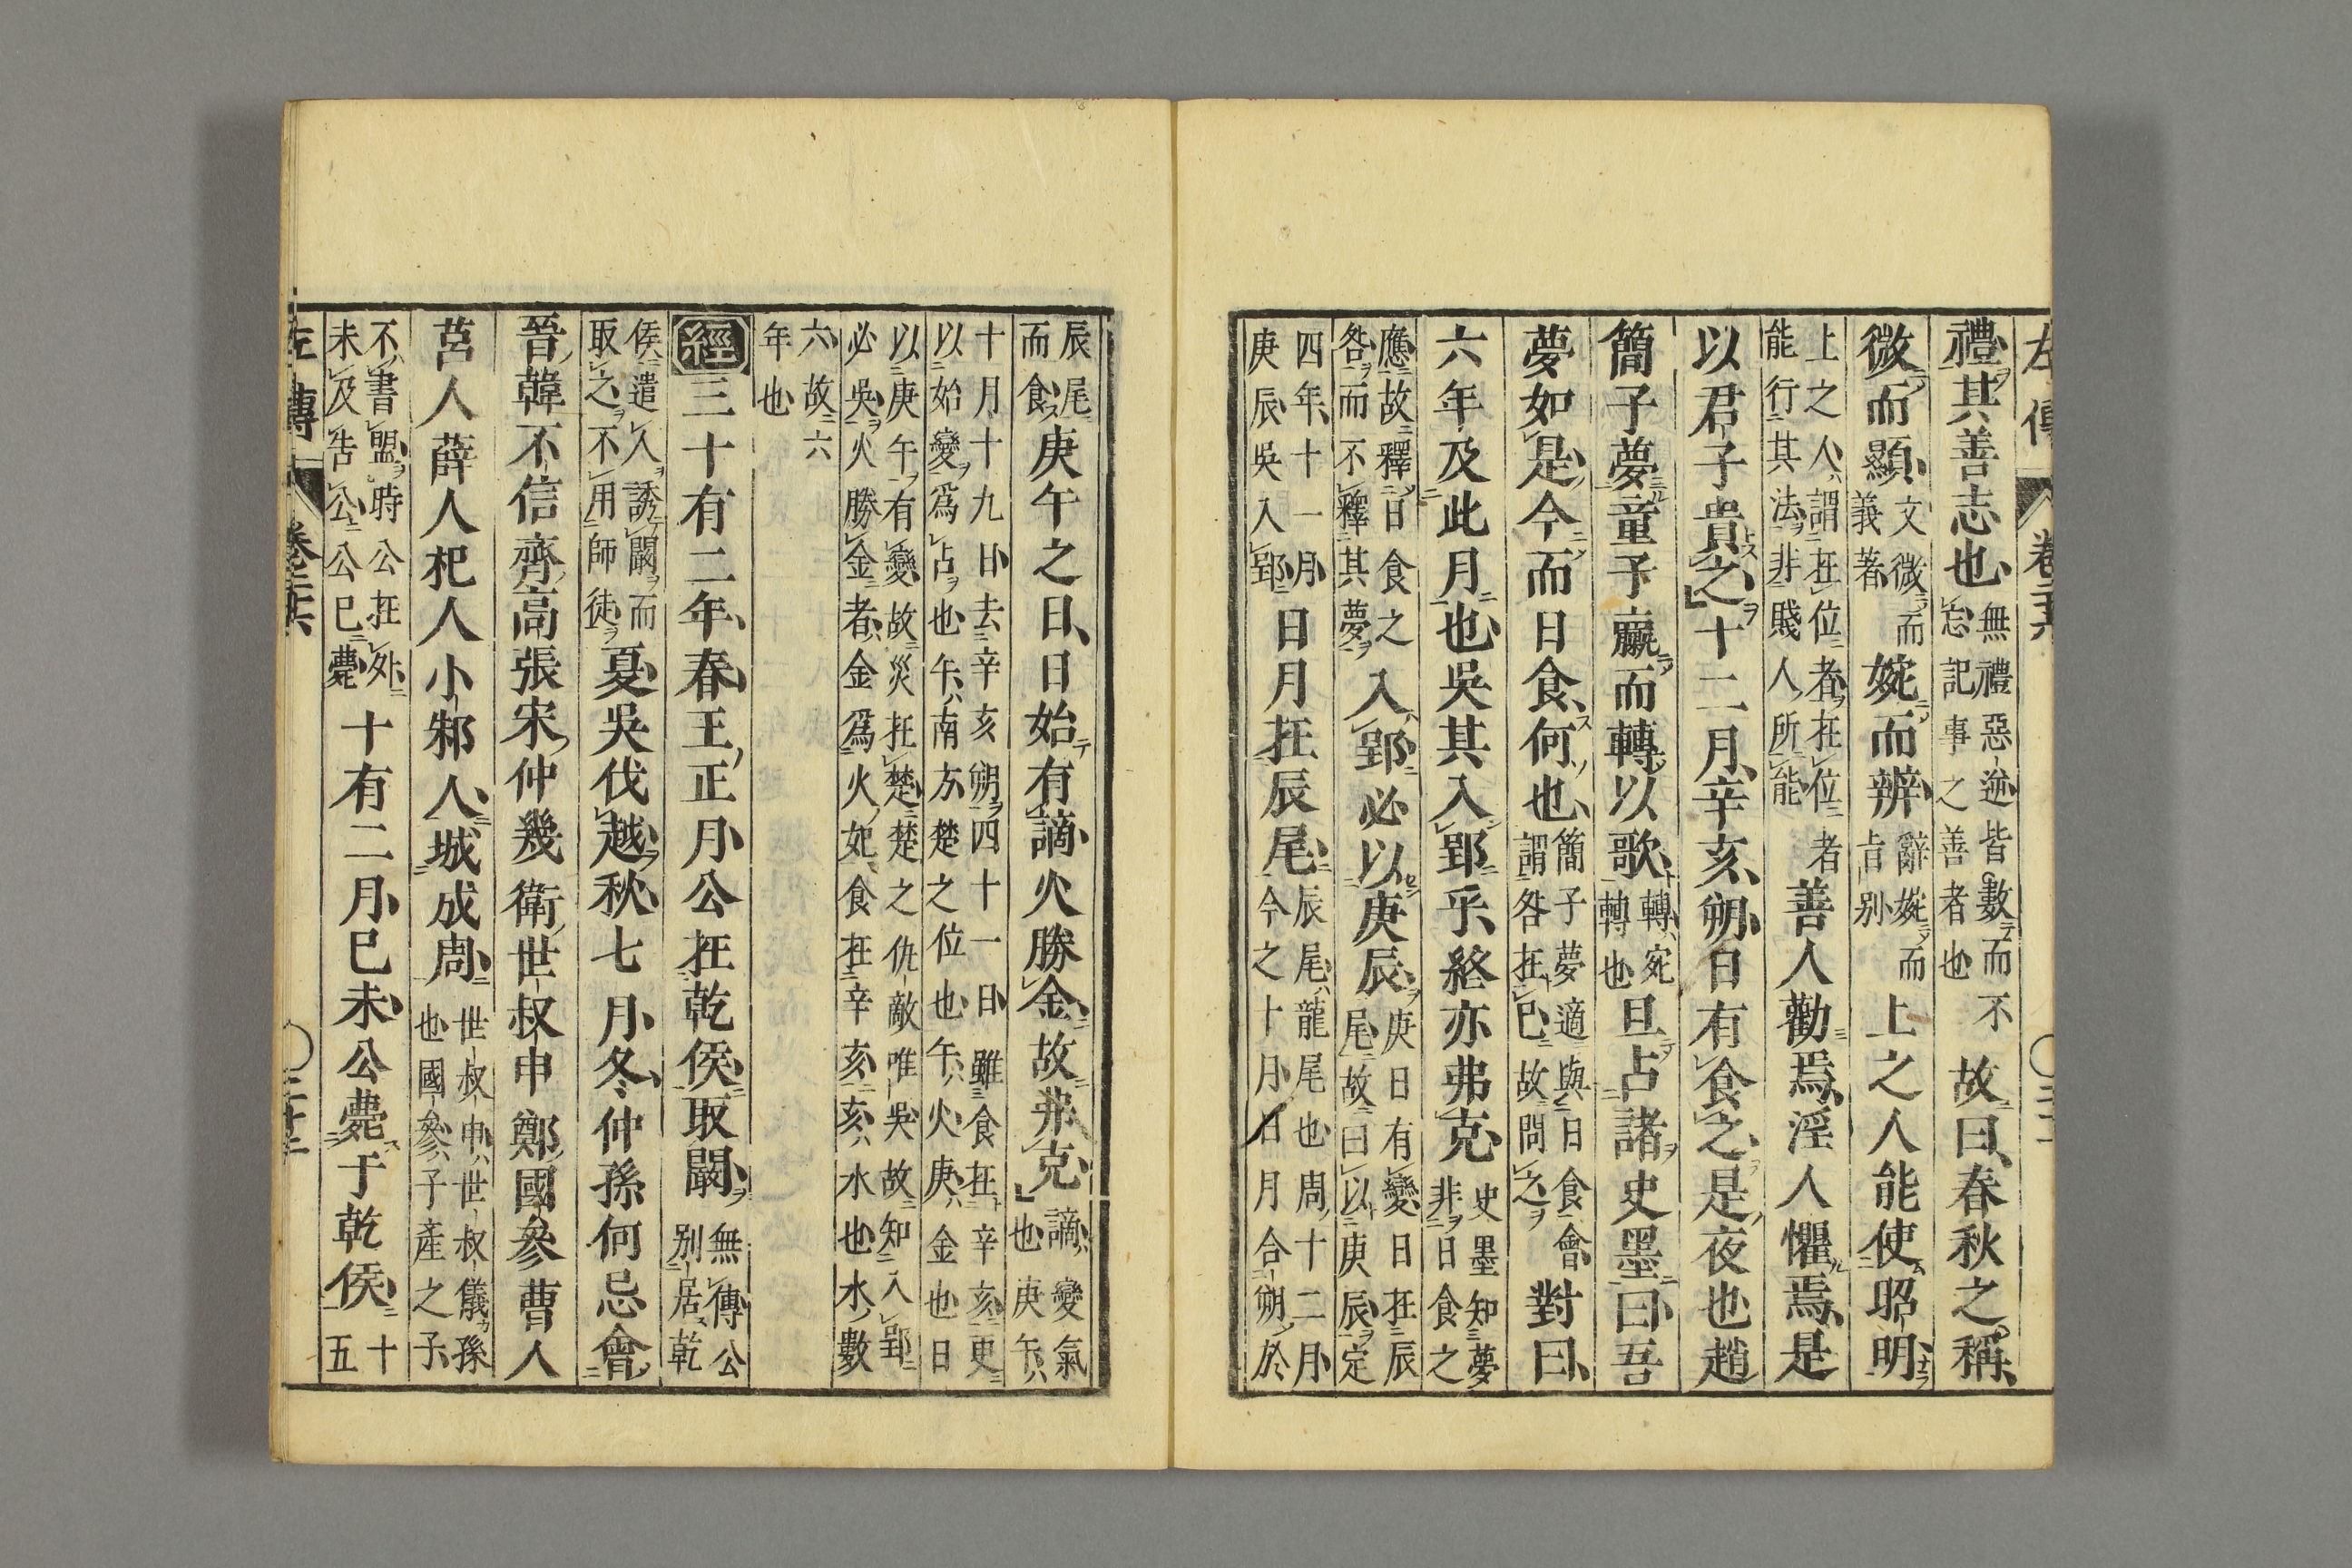 左傳 卷二十六
禮其善志也無禮惡逆皆數而不忘記事之善者也故曰春秋之稱
微而顯文微而義著婉而辨辭婉而旨別上之人能使昭明
上之人謂在位者在位者能行其法非賤人所能善人勸焉淫人懼焉是
以君子貴之十二月辛亥朔日有食之是夜也趙
簡子夢童子臝而轉以歌轉宛轉也旦占諸史墨曰吾
夢如是今而日食何也簡子夢適與日食會謂咎在己故問之對曰
六年及此月也吳其入郢乎終亦弗克史墨知夢非日食之
應故釋日食之咎而不釋其夢入郢必以庚辰庚日有變日在辰尾故曰以庚辰定
四年十一月庚辰吳入郢日月在辰尾辰尾龍尾也周十二月今之十月日月合朔於
辰尾而食庚午之日日始有謫火勝金故弗克謫變氣也庚午
十月十九日去辛亥朔四十一日雖食在辛亥更
以始變爲占也午南方楚之位也午火庚金也日
以庚午有變故災在楚楚之仇敵唯吳故知入郢
必吳火勝金者金爲火妃食在辛亥亥水也水數
六故六年也
經三十有二年春王正月公在乾侯取闞無傳公別居乾
侯遣人誘闞而取之不用師徒夏吳伐越秋七月冬仲孫何忌會
晉韓不信齊高張宋仲幾衛世叔申鄭國參曹人
莒人薛人杞人小邾人城成周世叔申世叔儀孫也國參子產之子
不書盟時公在外未及告公公已薨十有二月己未公薨于乾侯十五
左傳 卷二十六